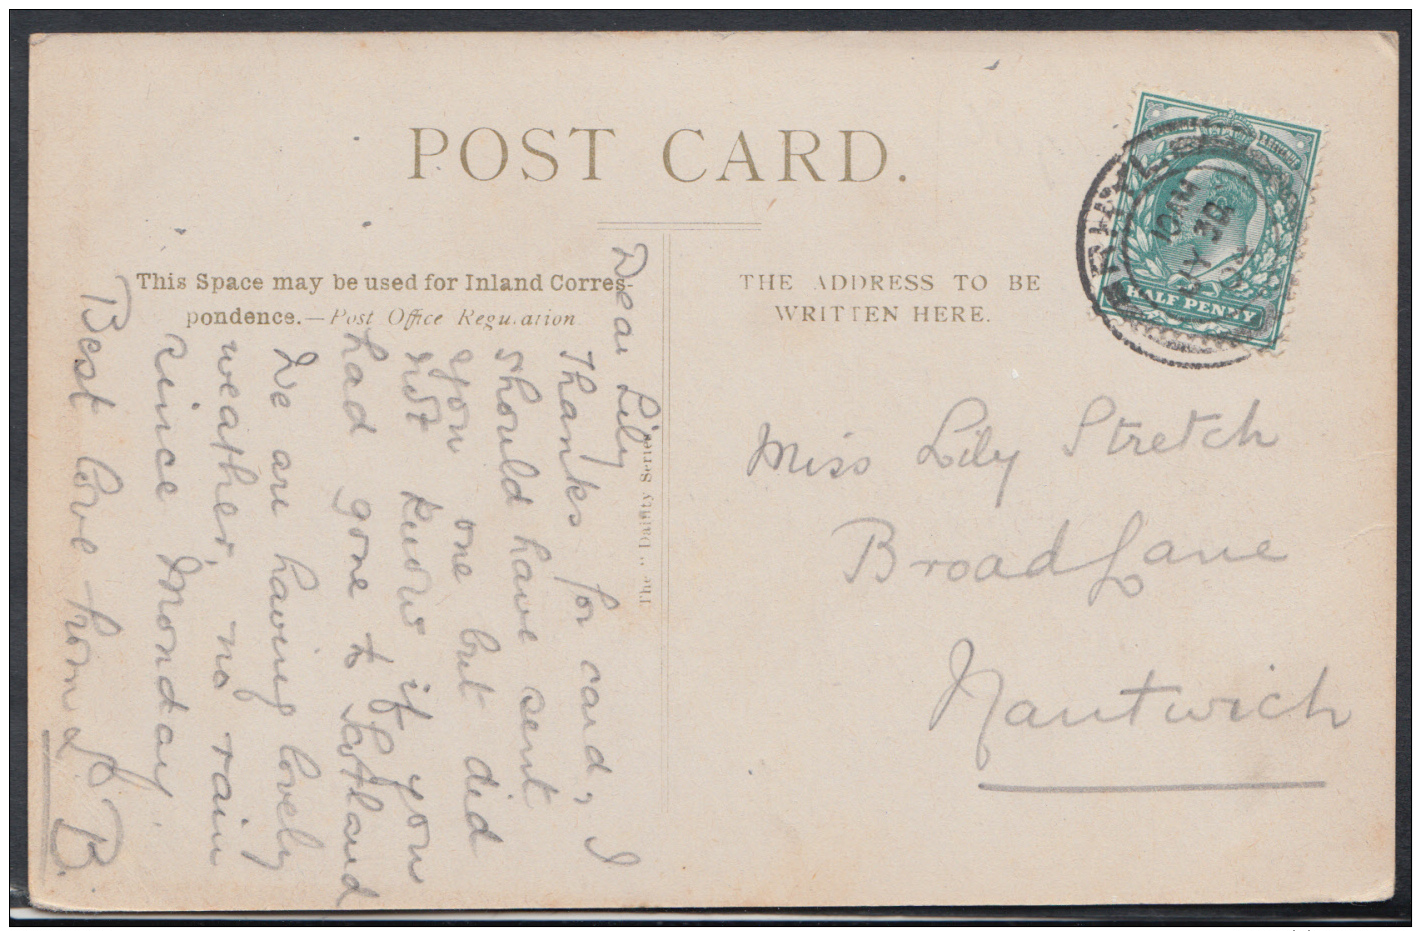 POST CARD.
This Space may be used for Inland Corres-
pondence.—Post Office Regulation
THE ADDRESS TO BE
WRITTEN HERE.
The "Dainty Series
RHYL
10 AM
JY 30
HALF PENNY
Dear Lily
Thanks for card, I
should have sent
you one but did
not know if you
had gone to Scotland
We are having lovely
weather, no rain
since Monday.
Best love from L B.
Miss Lily Stretch
Broad Lane
Nantwich